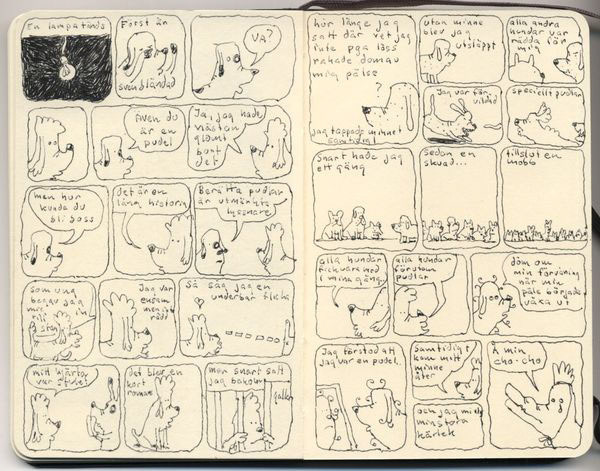 En lampa tänds
Först är
sven bländad
VA?
Även du
är en
pudel
Ja, jag hade
nästan
glömt
bort
det
men hur
kunde du
bli boss
det är en
lång historia
Berätta pudlar
är utmärkta
lyssnare
som ung
begav jag
mig in
till
stan
Jag var
ensam
men inte
rädd
Så såg jag en
underbar flicka
mitt hjärta
var stulet
det blev en
kort
romans
men snart satt
jag bakom
galler
hur länge jag
satt där vet jag
inte pga löss
rakade dom av
mig päls
?
jag tappade minnet
samtidigt
utan minne
blev jag
utsläppt
alla andra
hundar var
rädda för
mig
Jag var för
vildad
speciellt pudlar
Snart hade jag
ett gäng
Sedan en
skvad...
tillslut en
mobb
alla hundar
fick vara med
i mina gäng
alla hundar
förutom
pudlar
dom om
min förvåning
när min
päls började
växa ut
Jag förstod att
jag var en pudel.
Samtidigt
kom mitt
minne
åter
och jag
min stora
kärlek
Å min
cho-cho